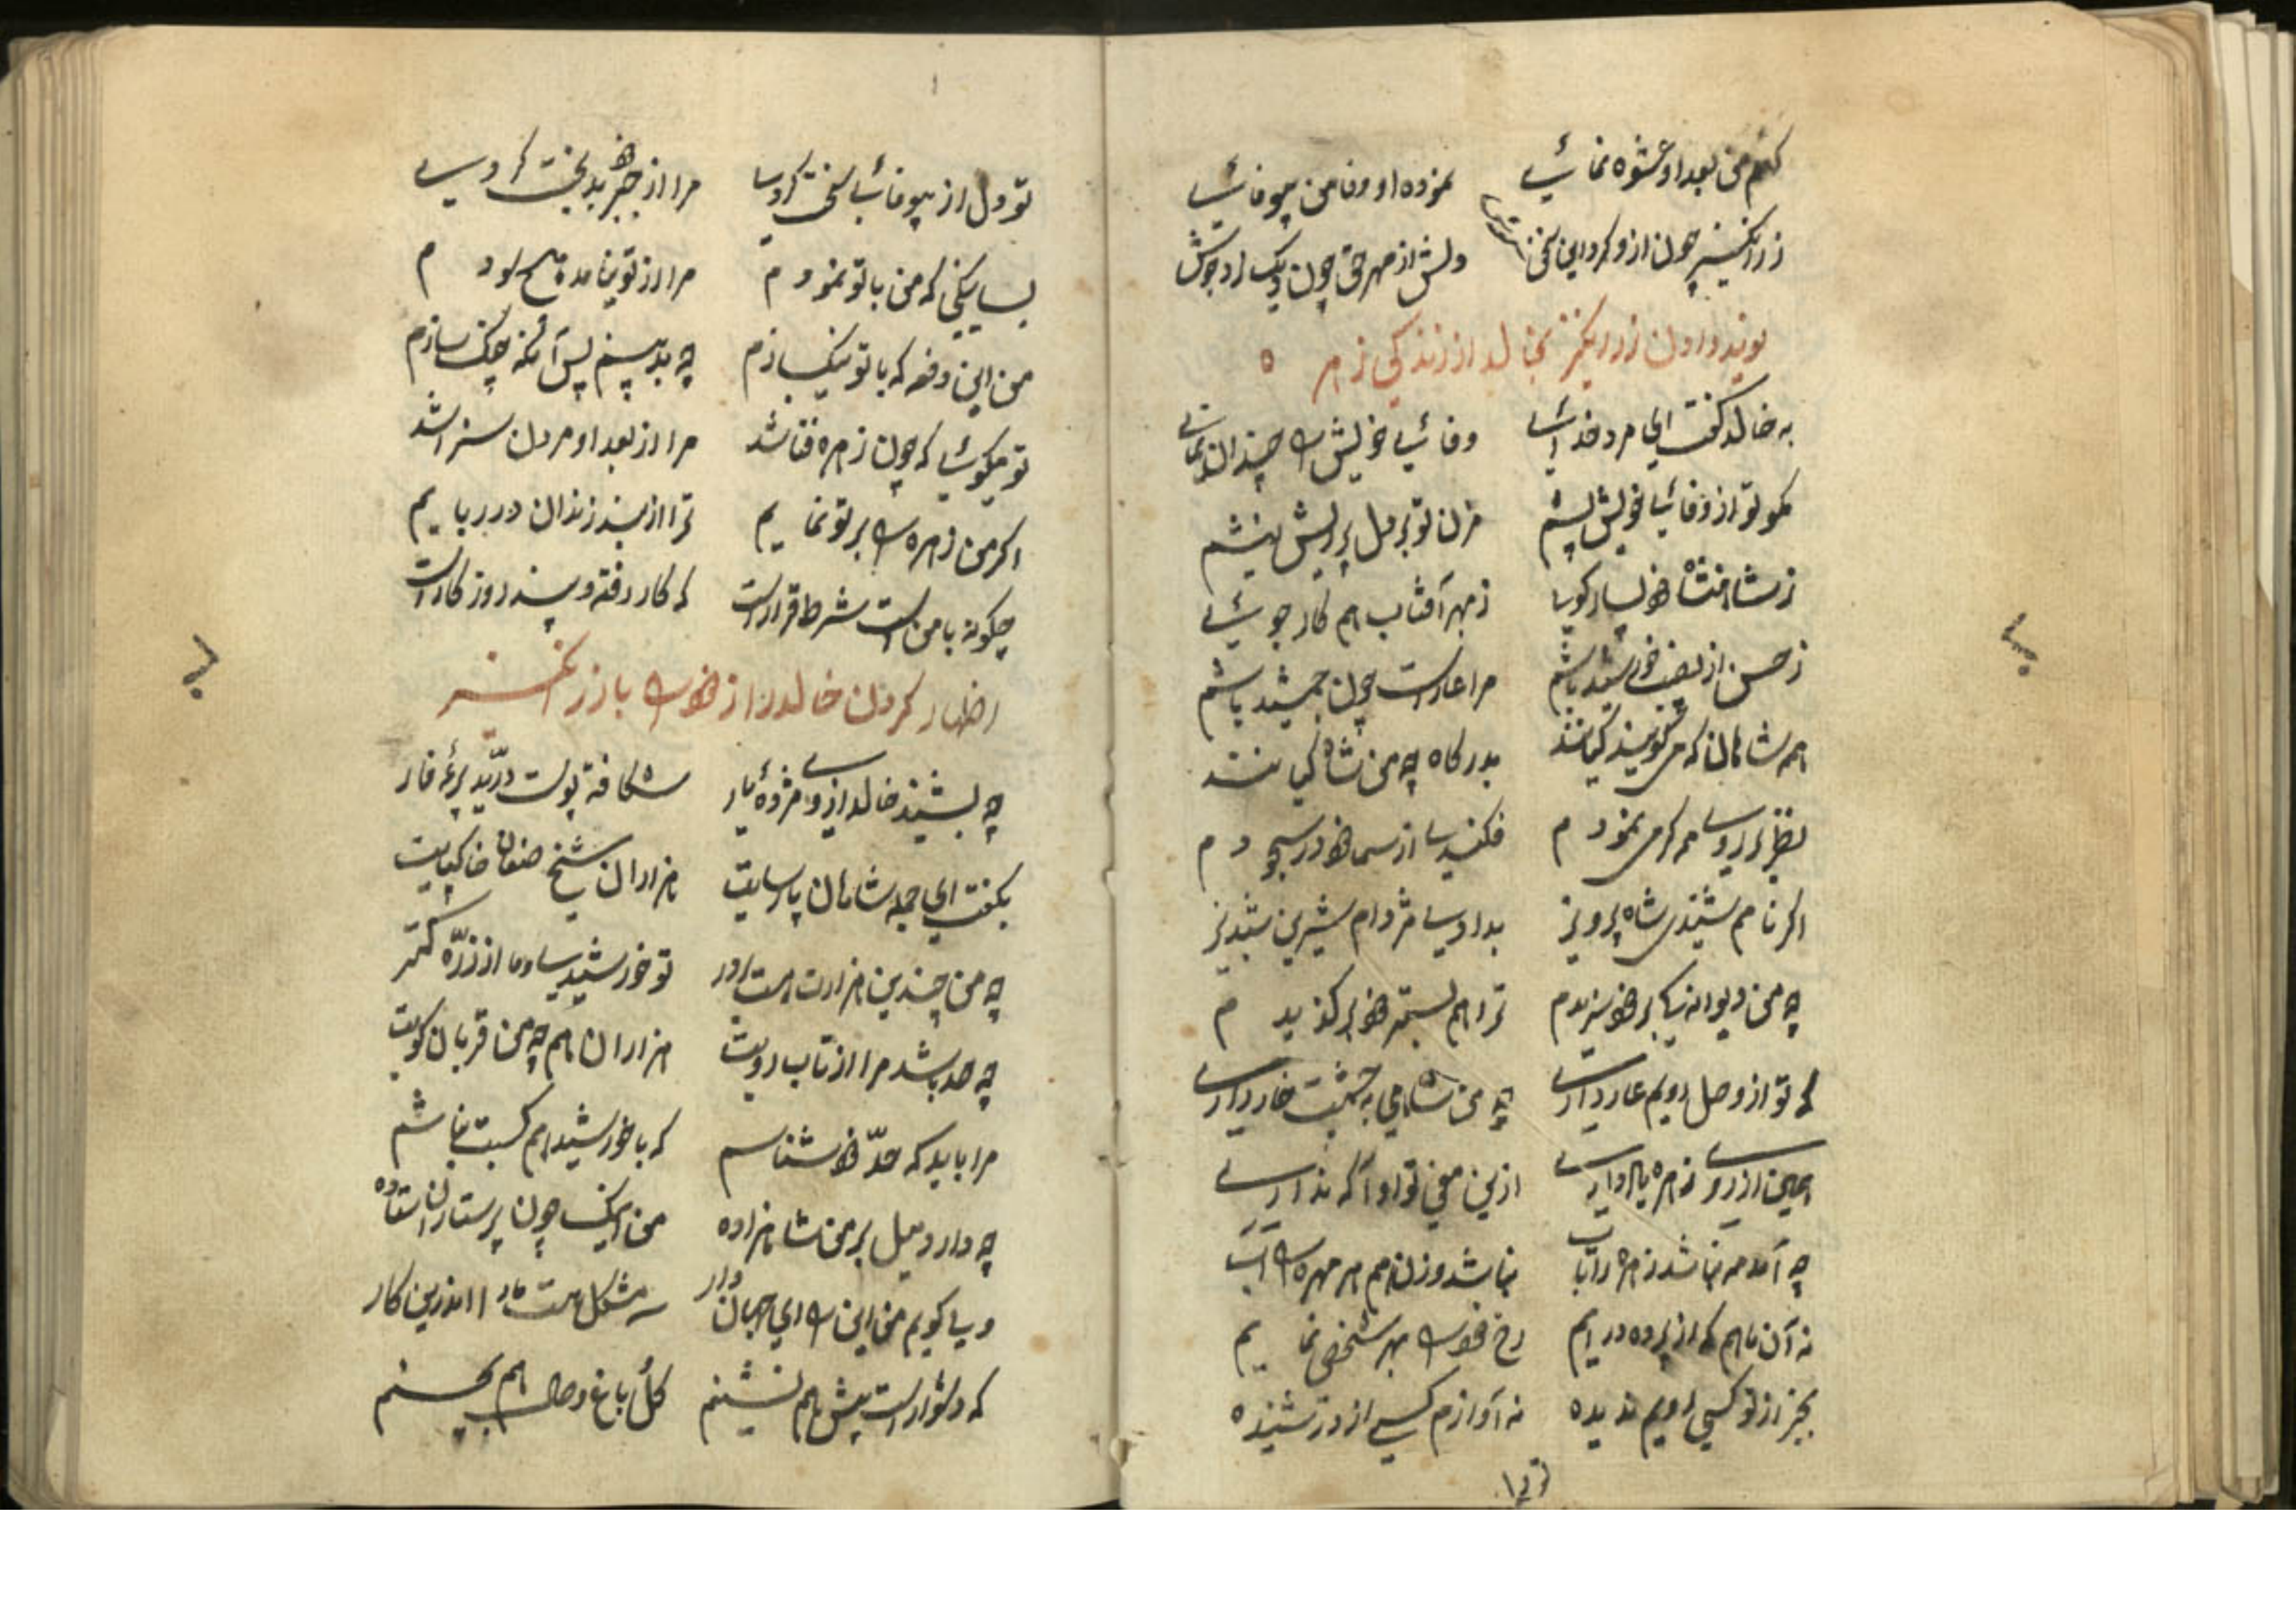 کنم من بعد او عشوه نمائی نموده او وفا من بیوفائی
زرانگیز چون ازو کرد این سخن دلش از مهر حق چون دیک در جوش
نوید دادن زرانگیز بخالد از زندگی زهره
به خالد گفت ای مرد خدائی وفائی خویش را چندان
مگو تو از وفائی خویش پیشم مزن تو بر دل پر ریش نیشم
ز شاهنشاه خود بسیار گویی ز مهر آفتاب هم کار جوئی
ز حسن از بعضی خورشید باشم مرا عارست چون جمشید باشم
همه شاهان که می گویند کیانند بدرگاه چه من شاه
نظر بر روی هر کس می نمودم فکندی از سما خود در سجودم
اگر نامم شنیدی شاه پرویز بدادی مژدام شیرین شبدیز
چه من دیوانه بر خود سزیدم ترا هم بستم خود بر گزیدم
که تو از وصل رویم عار داری چه من شاهی به چشمت خار داری
همین از روی زهره یار داری ازین معنی تو او آگه نداری
چه آمد مه نباشد زهره را تاب نباشد وزن هم هر مهره را آب
نه آن ماهم که از پرده در آیم رخ خود را بهر شخصی نمایم
بجز از تو کسی رویم ندیده نه آوازم کسی از در شنیده
تو دل از بیوفائی سخت کردی مرا از جبر بد بخت کردی
بسا نیکی که من با تو نمودم مرا از تو نیامد هیچ سودم
من این دفعه که با تو نیک سازم چه بد بینم پس آنگه جنگ سازم
تو میگوئی که چون زهره فنا شد مرا از بعد او مردن سزا شد
اگر من زهره را بر تو نمایم ترا از بند زندان در ربایم
چگونه با منت شرط قرارست که کار رفته و بند روزگارست
اظهار کردن خالد راز خود را با زرانگیز
چه بشنید خالد ازو مژدهٔ یار شکافته پوست درّید پردهٔ فار
بگفت ای جمله شاهان پارسایت هزاران شیخ صنعان خاکپایت
چه من چندین هزارت هست بر در تو خورشیدی و ما از ذرّه کمتر
چه حد باشد مرا از تاب رویت هزاران هم چه من قربان کویت
مرا باید که حدّ خود شناسم که با خورشید هم نسبت نباشم
چه دارد میل بر من شاهزاده من اینک چون پرستاران ستاده
ولی گویم من این را ای جهان دار سه مشکل هست ما را اندرین کار
که دشوارست پیش هم نشینم گل باغ وصال هم بچینم